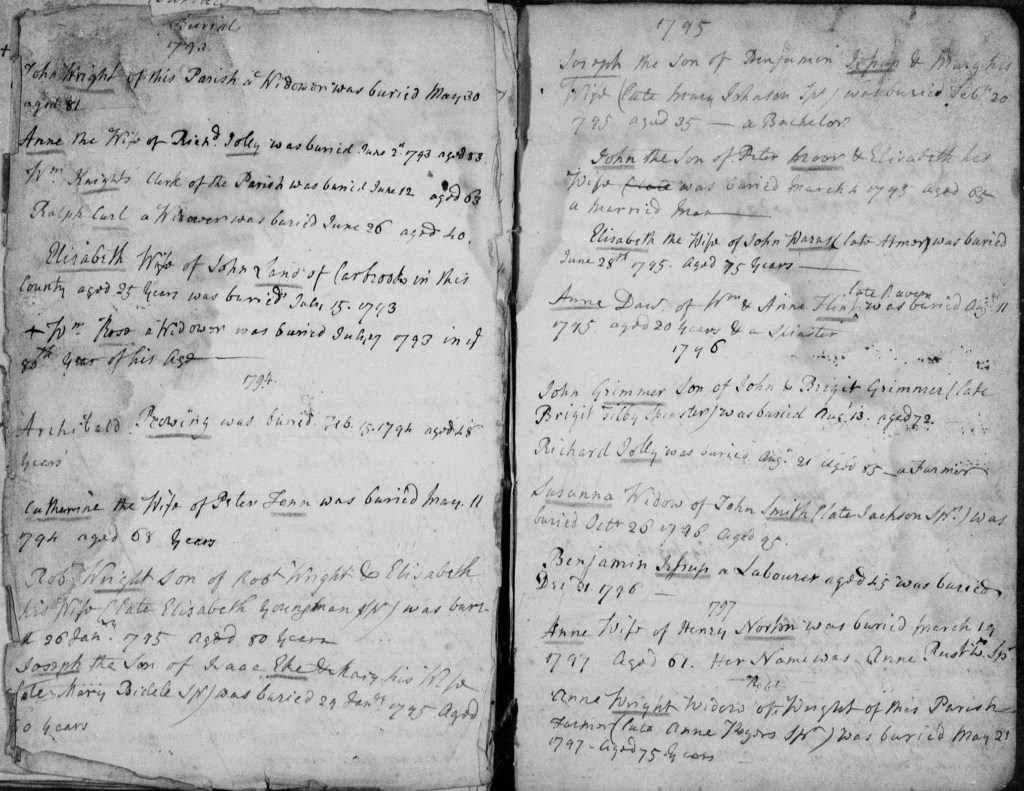 Burials
1793
John Wright of this Parish a Widower was buried May 30
aged 81
Anne the Wife of Richd. Jolly was buried June 2d. 1793 aged 83
Wm. Knights Clerk of the Parish was buried June 12 aged 63
Ralph Carl a Widower was buried June 26 aged 40.
Elizabeth Wife of John Land of Carbrook in this
County aged 25 Years was buried July 15. 1793
+ Wm. Rose a Widower was buried July 17 1793 in ye
80th Year of his Age
1794.
Archibald Prowing was buried Feb. 15. 1794 aged 48
Years
Catharine the Wife of Peter Fenn was buried May. 11
1794 aged 68 Years
Robt. Wright Son of Robt. Wright & Elisabeth
his Wife (late Elisabeth Youngman Spr) was buri-
26 Janry. 1795 aged 80 Years
Joseph the Son of Isaac Eke & Mary his Wife
late Mary Spr) was buried 29 Janry 1795 Aged
0 Years
1795
Joseph the Son of Benjamin Jessup & Mary his
Wife (late Mary Johnson Spr) was buried Feby. 20
1795 aged 35 — a Bachelor
John the Son of Peter Moor & Elisabeth her
Wife (late was buried March 4 1795 aged 65
a Married Man
Elisabeth the Wife of John (late Amor) was buried
June 28th 1795. Aged 75 Years
late Raven
Anne Daur. of Wm & Anne Flint was buried Augst 11
1795. aged 20 Years & a Spinster
1796
John Grimmer Son of John & Brigit Grimmer (late
Brigit Tilby Spinster) was buried Augt. 13. aged 72.
Richard Jolly was buried Augt. 21 aged 85 — a Farmer
Susanna Widow of John Smith (late Jackson Spr.) was
buried Octr 26 1796 Aged 95.
Benjamin Jessup a Labourer aged 45 was buried
Decr. 21 1796 —
1797
Anne Wife of Henry Norton was buried March 19
1797 Aged 61. Her Name was Anne Spr
Robt
Anne Wright Widow of Wright of this Parish
Farmer (late Anne Rogers Spr) was buried May 21
1797 - Aged 75 Years